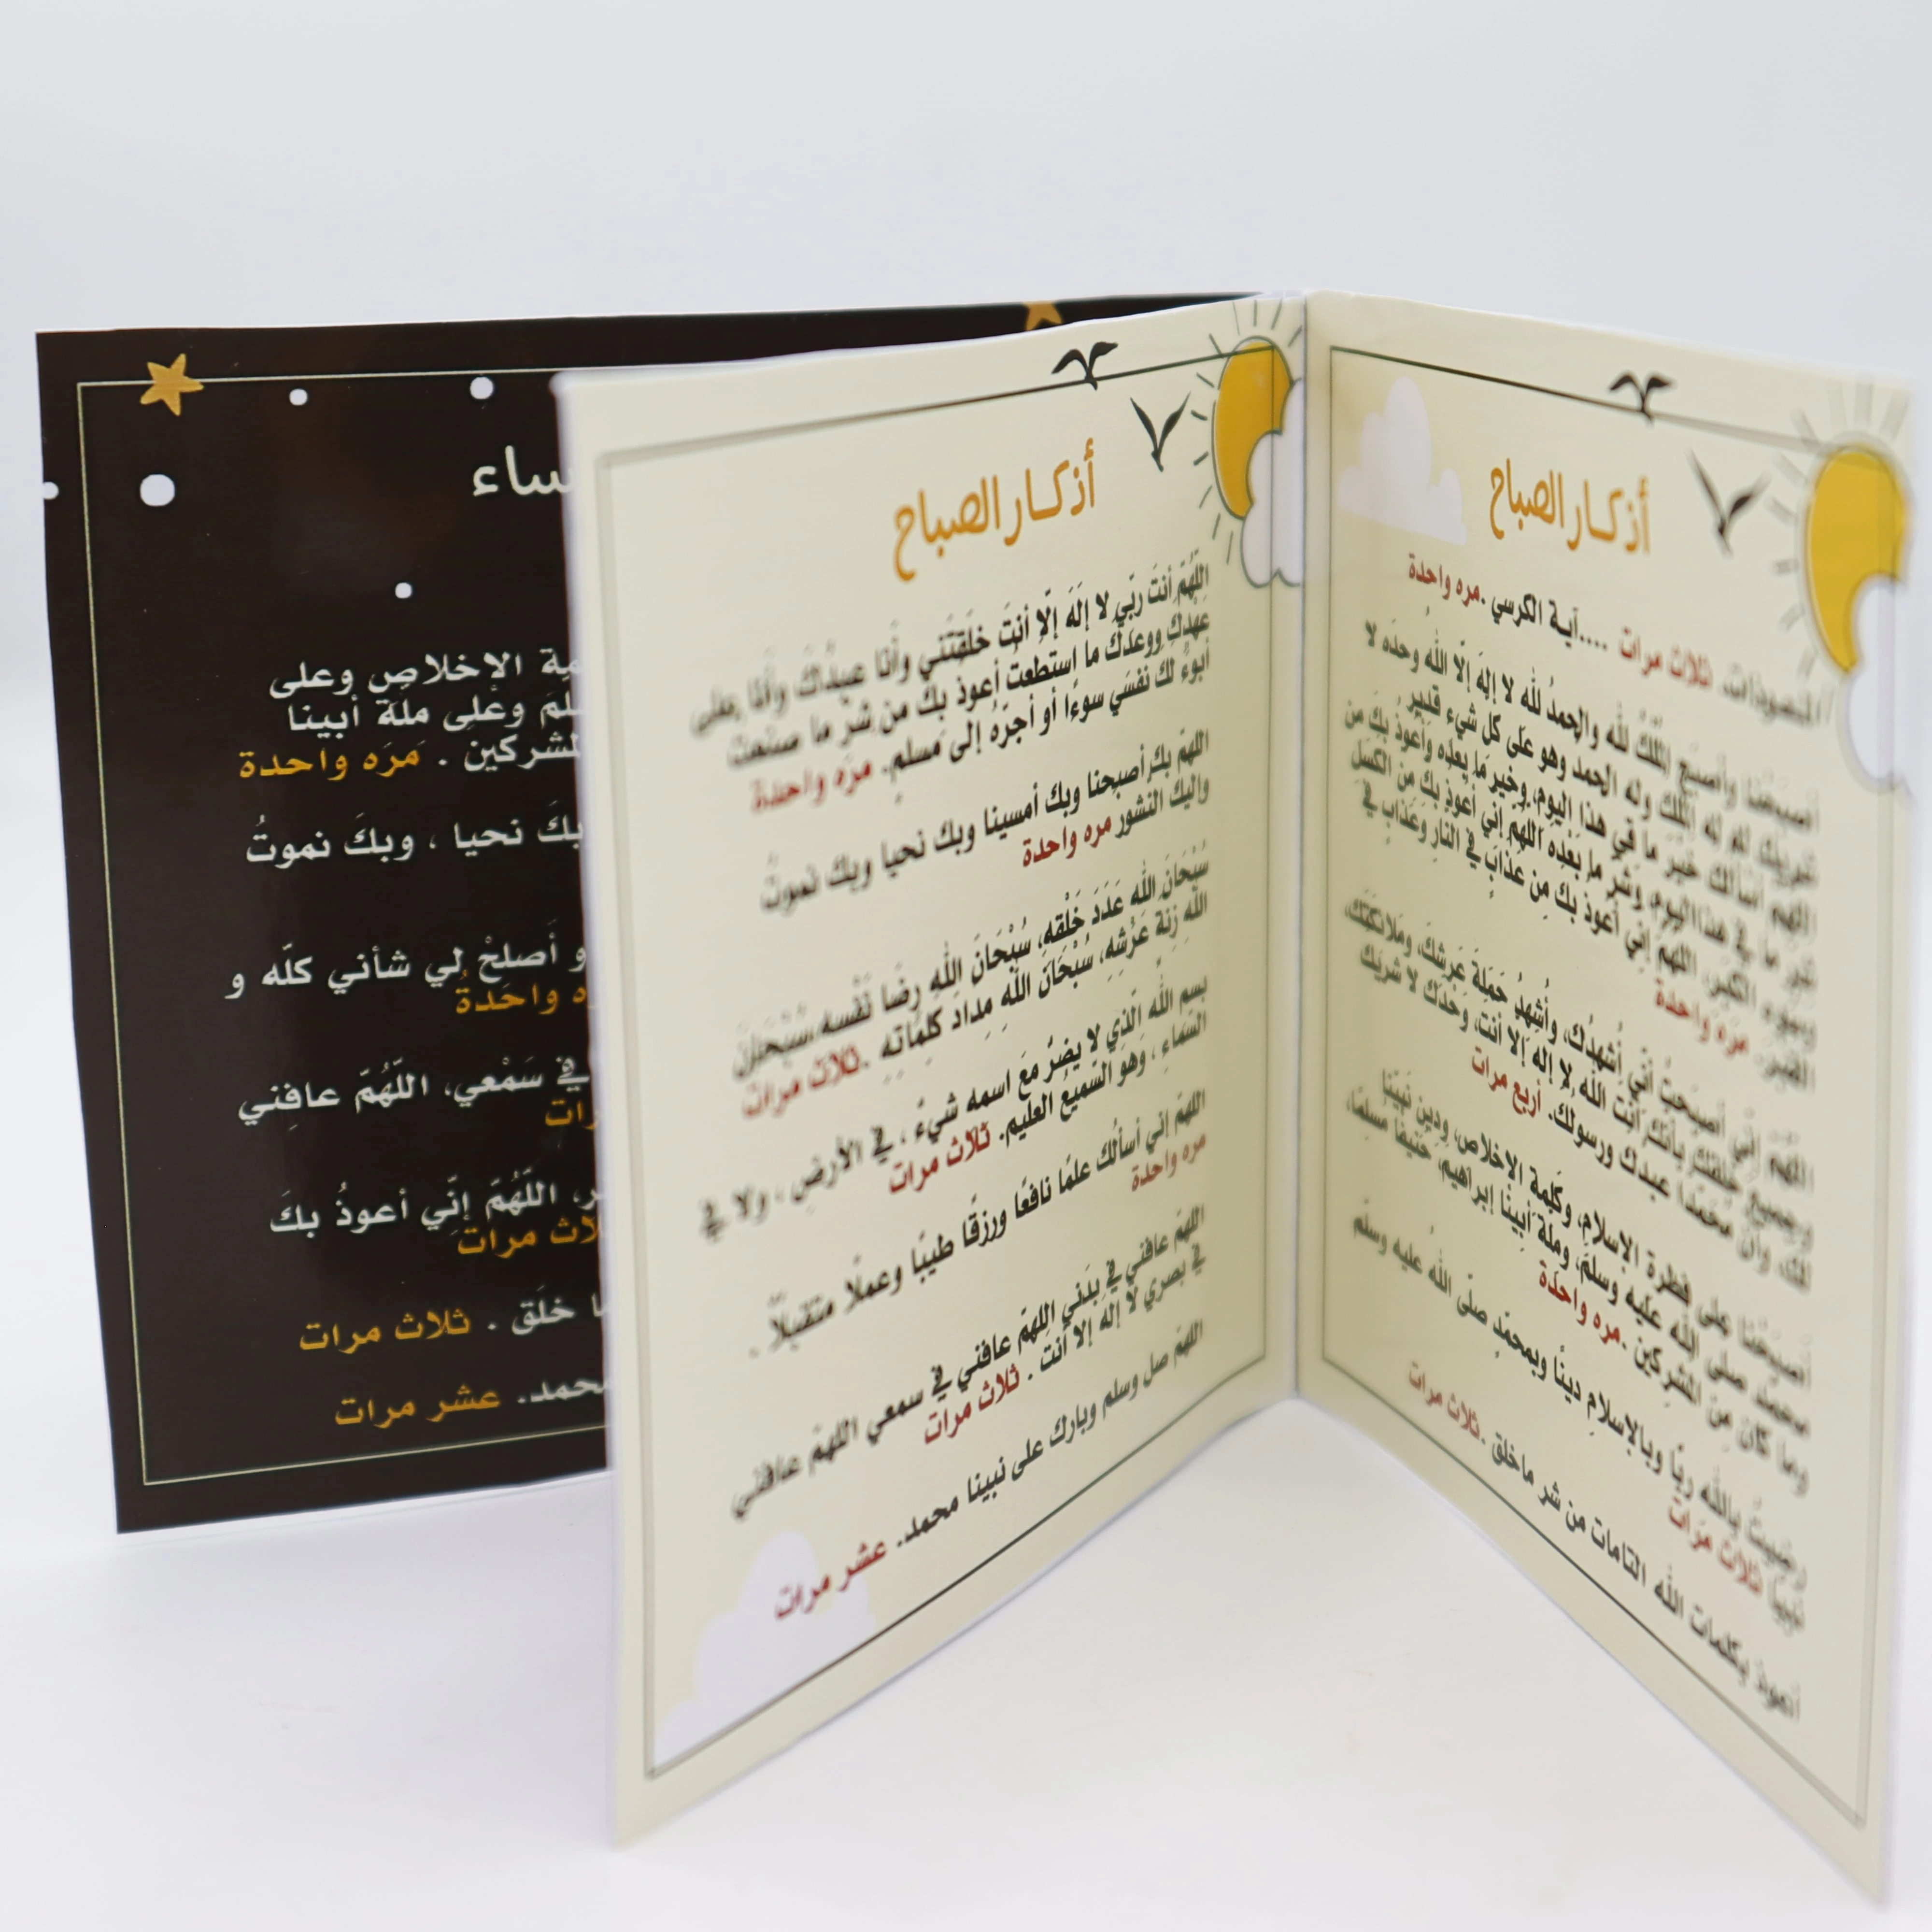 أذكار الصباح
المعوذات. ثلاث مرات ....آية الكرسي .مره واحدة
أصبحْنا وأصبَح المُلْكُ لله والحمدُ لله لا إلهَ إلّا اللهُ وحدَه لا
شريكَ له له المُلك وله الحمد وهو على كل شيء قدير
اللهم أسألك خير ما في هذا اليوم، وخير ما بعده وأعوذُ بكَ من
شر ما في هذا اليوم، وشر ما بعده اللهم إني أعوذ بك من الكسل
وسوء الكبر، اللهم إني أعوذ بك مِن عذابٍ في النارِ وعَذابٍ في
القبر. مره واحدة
اللهم إنّي أصبحتُ أنّي أُشهدُك، وأُشهِدُ حَمَلةَ عَرشِكَ، وملائكتك،
وجميع خلقك بأنك أنت الله لا إله إلا أنت، وحدك لا شريك
لك وأن محمدًا عبدك ورسولك. أربع مرات
أصبحْنا على فطرة الإسلام، وكَلِمة الإخلاص، ودين نبينا
محمد صلى الله عليه وسلم، وملة أبينا إبراهيم، حنيفًا مسلمًا،
وما كان مِن المشركين .مره واحدة
رضيتُ بالله ربًا وبالإسلامِ دينًا وبمحمدٍ صلّى اللهُ عليه وسلّم
نبيًا ثلاث مرات
أعوذ بكلمات الله التامات من شر ماخلق .ثلاث مرات
أذكار الصباح
اللّهُمّ أنتَ ربّي لا إلَهَ إلّا أنتَ خلَقْتَني وأَنَا عبدُكَ وأنَا على
عهْدِكَ ووعدَكَ ما استطعتُ أعوذ بكَ من شر ما صنعتُ
أبوءُ لك نفسَي سوءًا أو أجرّه إلى مسلمٍ. مره واحدة
اللهمّ بك أصبحنا وبك أمسينا وبك نحيا وبك نموتُ
واليك النشور مره واحدة
سُبْحَانَ الله عَدَدَ خَلْقِهِ، سُبْحَانَ اللهِ رِضَا نَفْسه،سُبْحَانَ
اللهِ زِنَةَ عَرْشِهِ، سُبْحَانَ اللهِ مِدَاد كلِمَاتِهِ .ثلاث مرات
بسم الله الّذي لا يضرّ مَعَ اسمه شيءٌ ، في الأرضِ ، ولا في
السّماءِ ، وَهوَ السّميعُ العليم. ثلاث مرات
اللهمّ إني أسألُك علمًا نافعًا ورزقًا طيبًا وعملًا متقبلًا .
مره واحدة
اللهمّ عافني في بدَني اللهمّ عافني في سمعي اللهمّ عافني
في بصري لا إلهَ إلا أنتَ . ثلاث مرات
اللهمّ صل وسلم وبارك على نبينا محمد. عشر مرات
ساء
مة الإخلاصِ وعلى
لمَ وعلى مِلة أبينا
لمشركين . مَره واحدة
بكَ نحيا ، وبكَ نموتُ
و أَصلحْ لي شأني كلّه و
ه واحدةُ
في سَمْعي، اللّهُمّ عافِني
رات
ر، اللّهُمّ إنّي أعوذُ بكَ
لاث مرات
ا خلَق . ثلاث مرات
محمد. عشر مرات